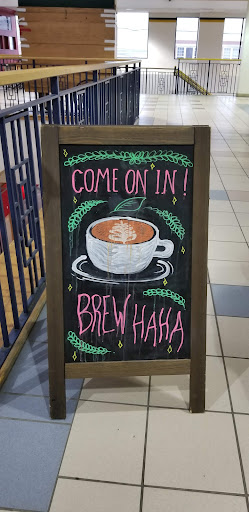 COME ON IN!
BREW HAHA